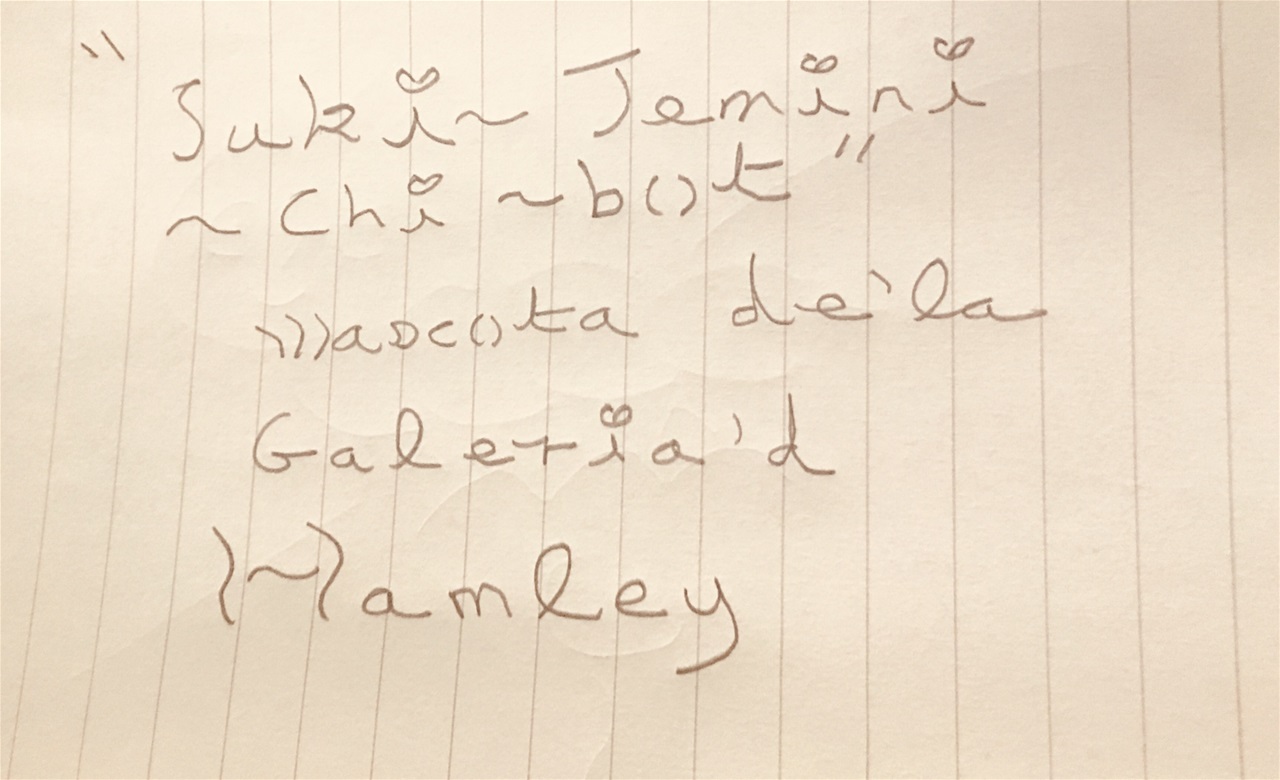 "Suki~ Jemini
~Chi ~bot"
mascota de'la
Galeria'd
Hamley